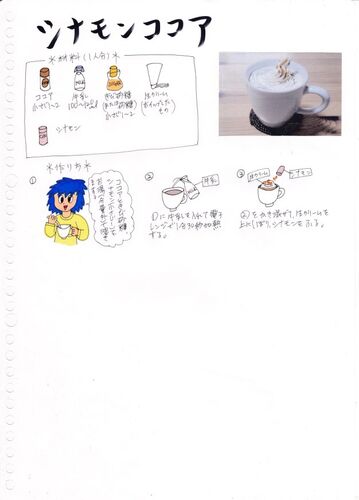 シナモンココア
＊材料(1人分)＊
ココア
小さじ1〜2
牛乳
きび砂糖
(または砂糖)
小さじ1〜2
生クリーム
(ホイップした
もの)
シナモン
＊作り方＊
①
ココアときび砂糖、
②
牛乳
①に牛乳を入れて電子
レンジで1分30秒加熱
する。
③
生クリーム
シナモン
②をかき混ぜて、生クリームを
上にしぼり、シナモンをふる。